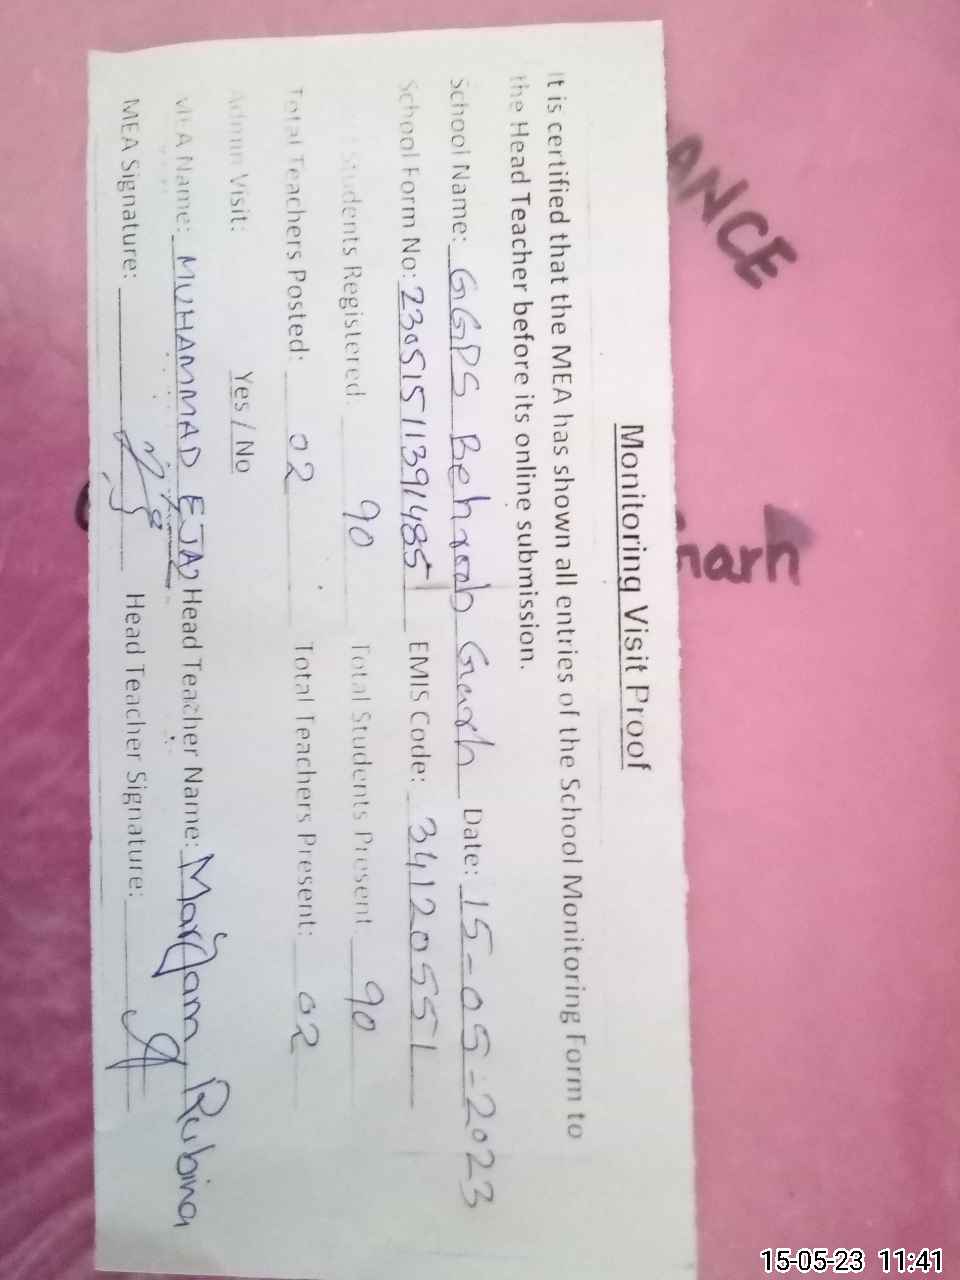 Monitoring Visit Proof
It is certified that the MEA has shown all entries of the School Monitoring Form to
the Head Teacher before its online submission.
School Name: GGPS Behroob Garh Date: 15-05-2023
School Form No: 23051511391485 EMIS Code: 34120551
Students Registered: 90 Total Students Present 90
Total Teachers Posted: 02 Total Teachers Present: 02
Admin Visit: Yes / No
MEA Name: MUHAMMAD EJAZ Head Teacher Name: Maryam Rubina
MEA Signature: Head Teacher Signature:
ANCE
Garh
15-05-23 11:41